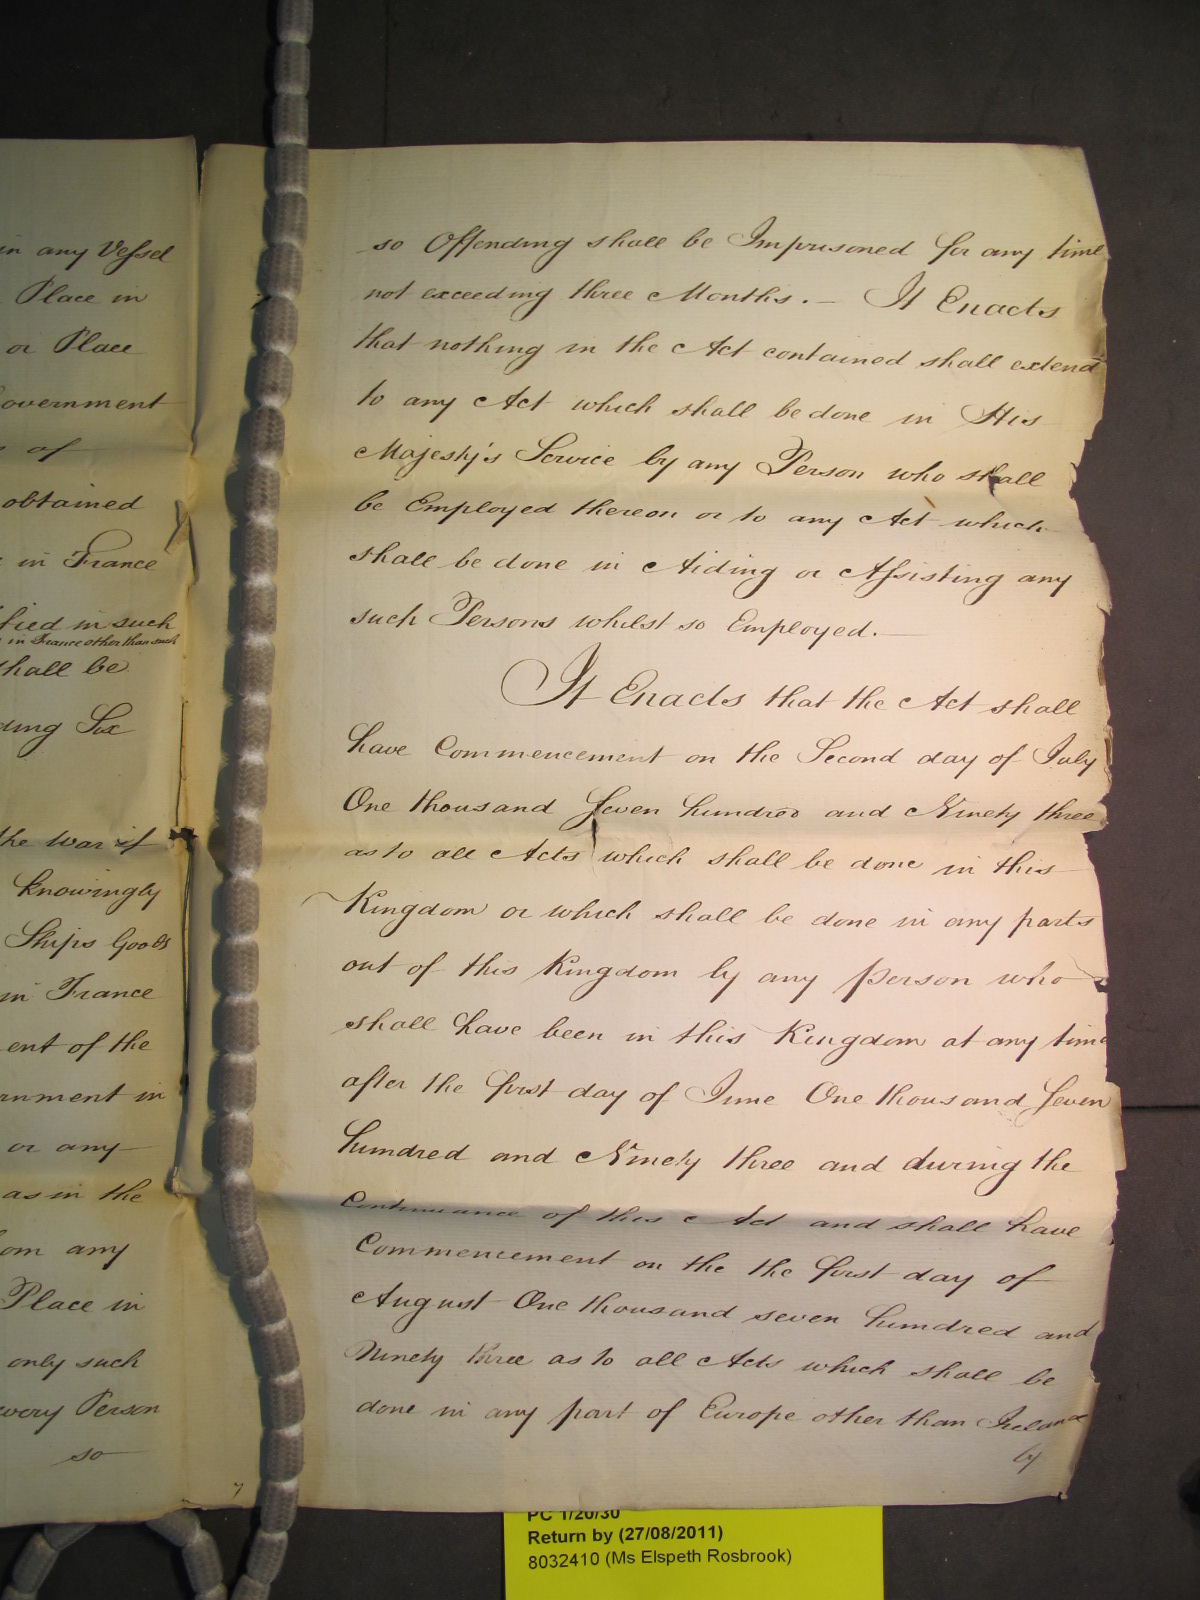 in any Vessel
Place in
or Place
overnment
of
obtained
in France
fied in such
in France other than such
shall be
ding Six
the war if
knowingly
Ships Goods
in France
ent of the
rnment in
or any
as in the
om any
Place in
only such
every Person
so
7
so Offending shall be Imprisoned for any time
not exceeding three Months. — It Enacts
that nothing in the Act contained shall extend
to any Act which shall be done in His
Majesty's Service by any Person who shall
be Employed thereon or to any Act which
shall be done in Aiding or Assisting any
such Persons whilst so Employed. —
It Enacts that the Act shall
have Commencement on the Second day of July
One thousand Seven hundred and Ninety three
as to all Acts which shall be done in this
Kingdom or which shall be done in any parts
out of this Kingdom by any person who
shall have been in this Kingdom at any time
after the first day of June One thousand Seven
hundred and Ninety three and during the
Continuance of this Act and shall have
Commencement on the the first day of
August One thousand seven hundred and
Ninety three as to all Acts which shall be
done in any part of Europe other than Ireland
by
PC 1/20/30
Return by (27/08/2011)
8032410 (Ms Elspeth Rosbrook)